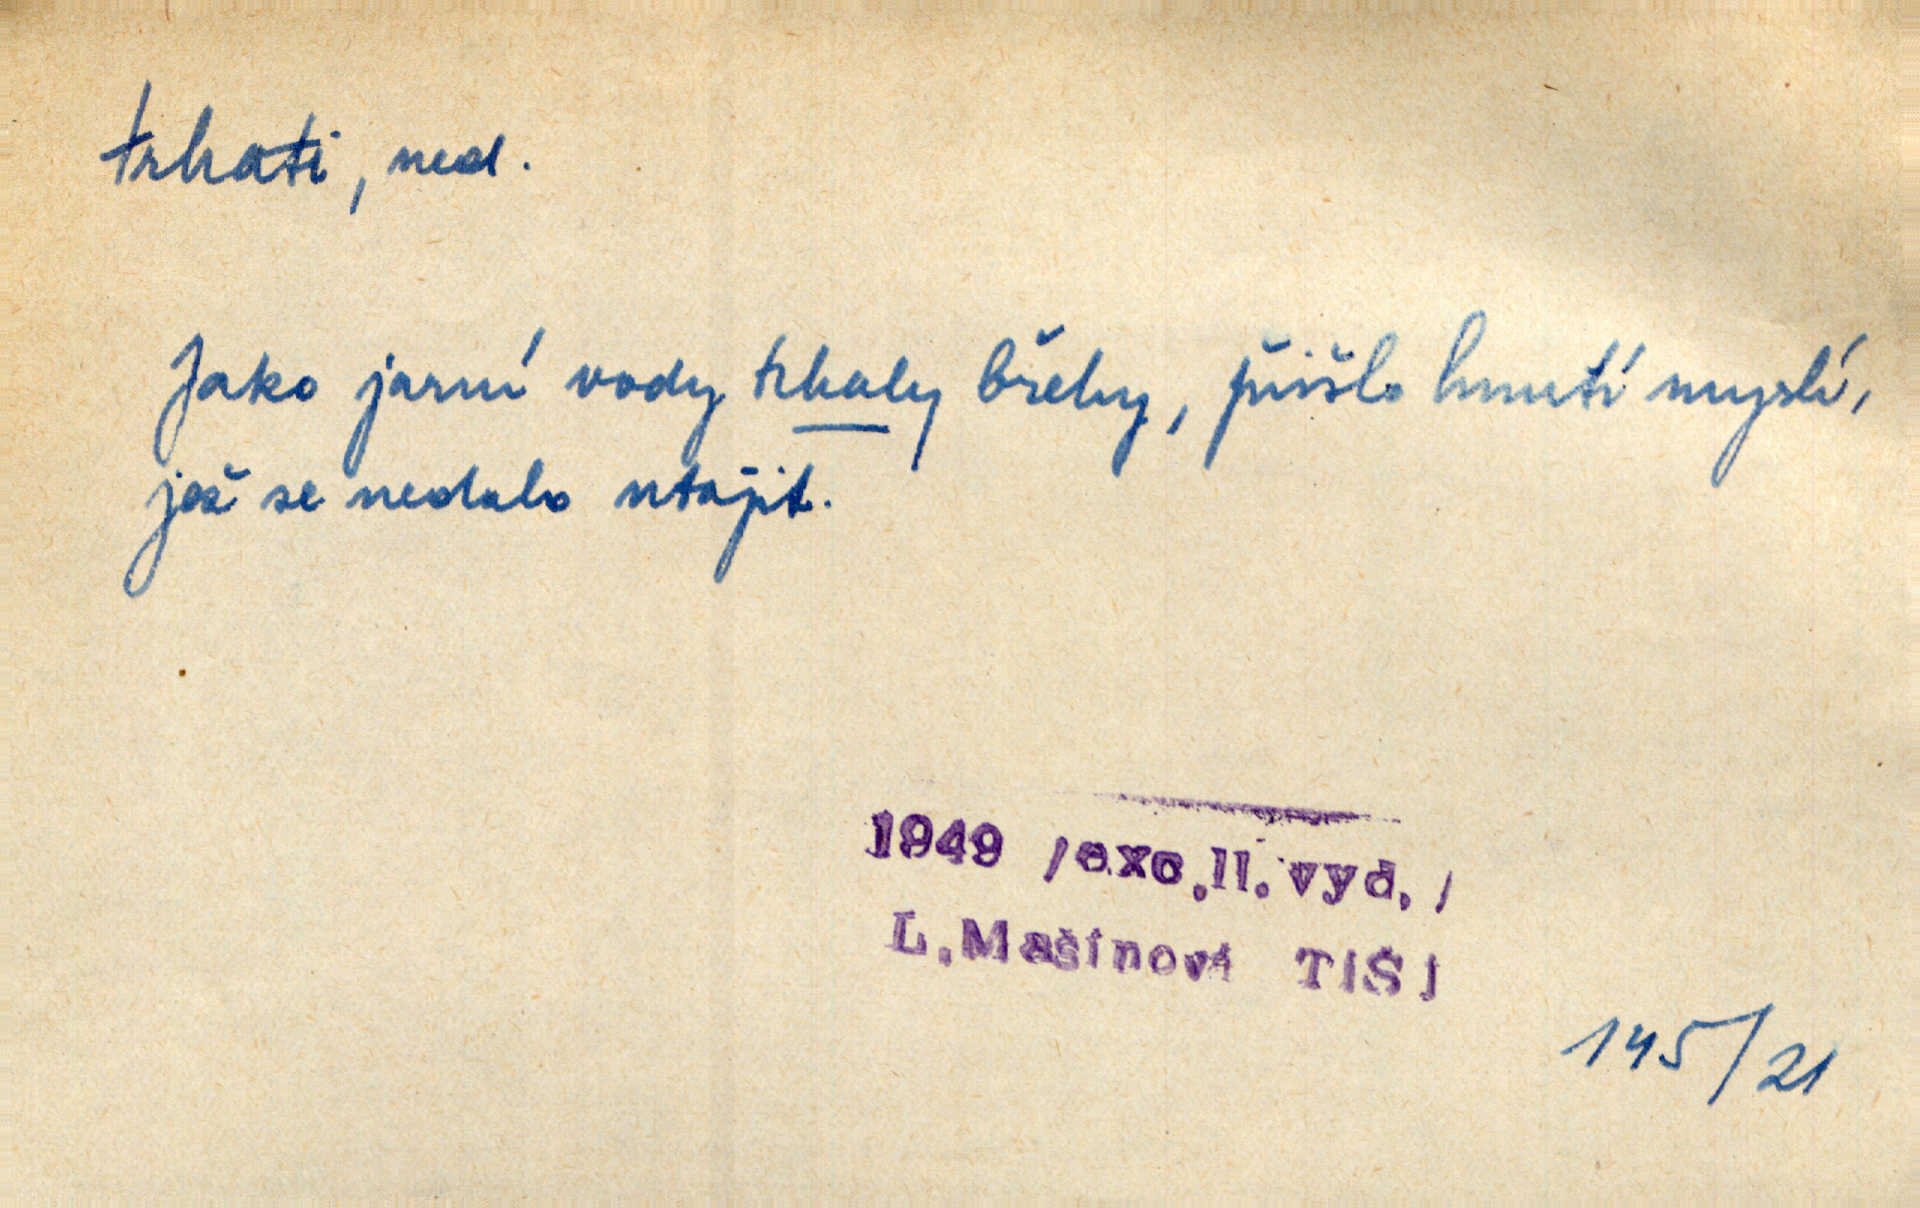 trhati, ned.
Jako jarní vody trhaly břehy, přišlo hnutí myslí,
jež se nedalo utajit.
1949 /exc.II.vyd./
L.Mašínoví TIŠI
145/21